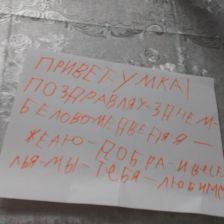 ПРИВЕТ УМКА!
ПОЗДРАВЛЯУ-ЗДНЕМ-
БЕЛОВОМЕДВЕДЯЯ-
ЖЕЛАЮ-ДОБРА-И ВЕСЕ
ЛЬЯ-МЫ-ТЕБЯ-ЛЮБИМ